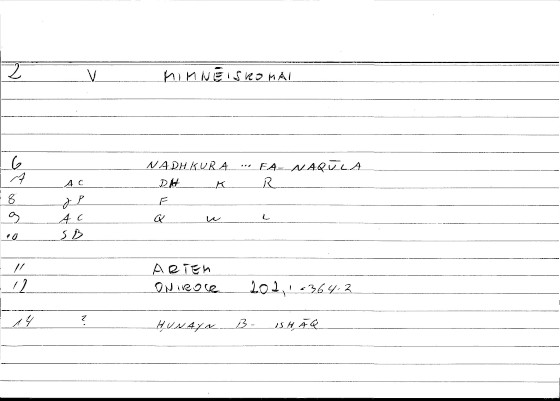 2 V MIMNĒISKOMAI
6 NADHKURA ... FA-NAQŪLA
7 AC DH K R
8 JP F
9 AC Q W L
10 SB
11 ARTEM
12 ONIROCR 202,1 = 364.2
14 ? ḤUNAYN B. ISḤĀQ